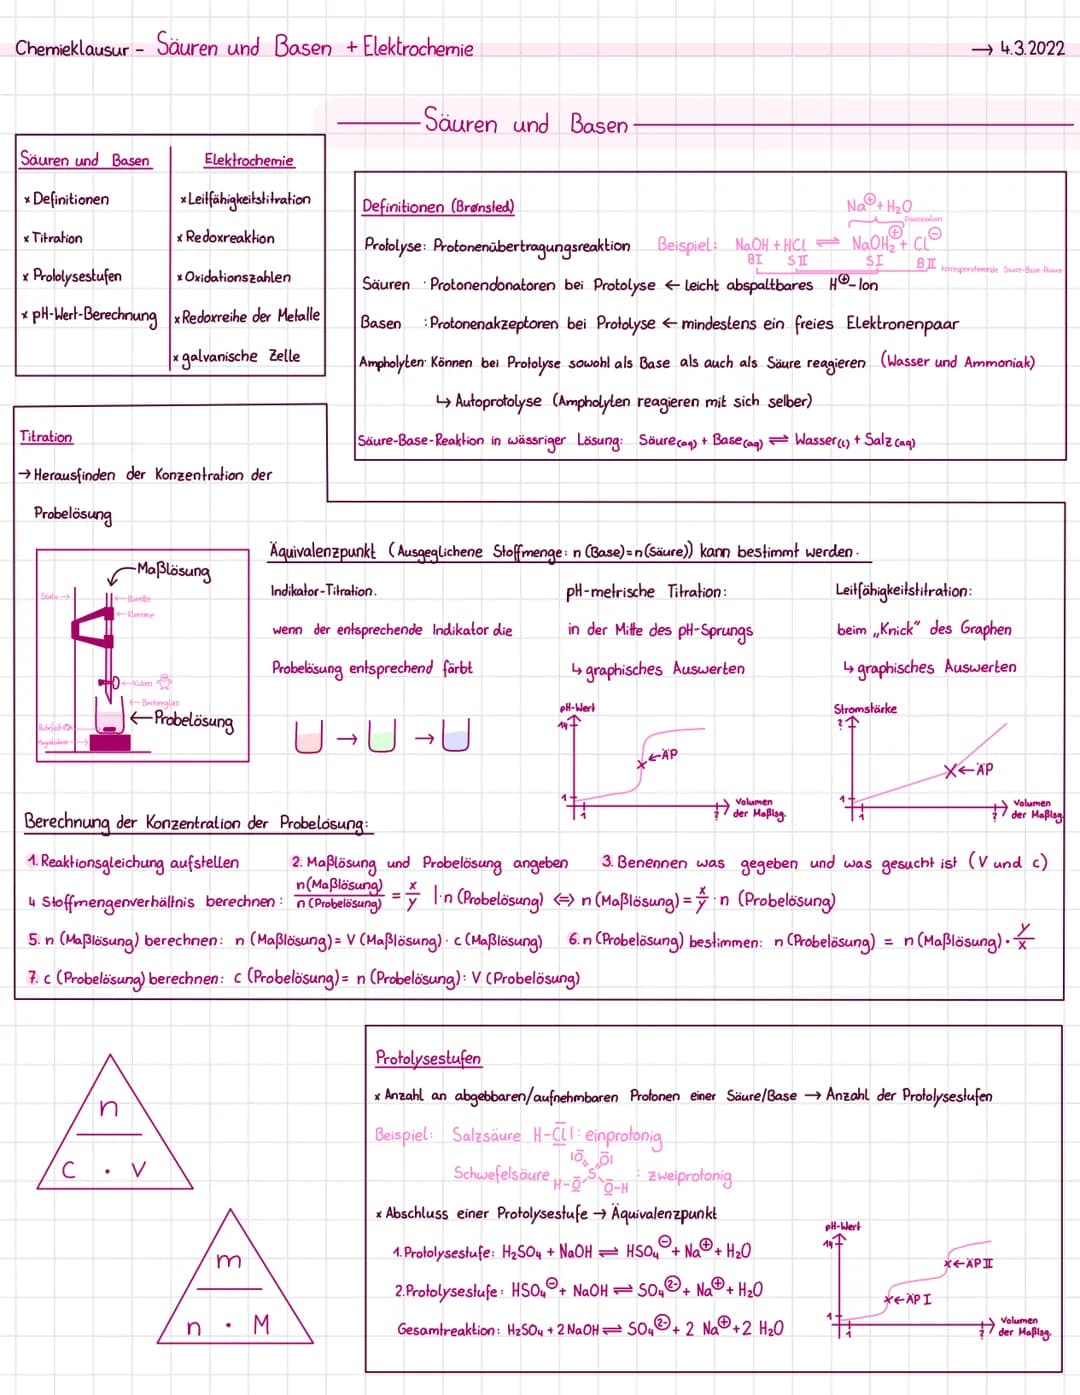 Chemieklausur - Säuren und Basen + Elektrochemie → 4.3.2022
Säuren und Basen
Säuren und Basen
x Definitionen
x Titration
x Protolysestufen
x pH-Wert-Berechnung
Elektrochemie
x Leitfähigkeitstitration
x Redoxreaktion
x Oxidationszahlen
x Redoxreihe der Metalle
x galvanische Zelle
Definitionen (Brønsted)
Na⊕ + H₂O
Dissoziation
Protolyse: Protonenübertragungsreaktion Beispiel: NaOH + HCl ⇌ NaOH₂⊕ + Cl⊖
BI SII SI BII korrespondierende Säure-Base-Paare
Säuren : Protonendonatoren bei Protolyse ← leicht abspaltbares H⊕-Ion
Basen : Protonenakzeptoren bei Protolyse ← mindestens ein freies Elektronenpaar
Ampholyten: Können bei Protolyse sowohl als Base als auch als Säure reagieren (Wasser und Ammoniak)
↳ Autoprotolyse (Ampholyten reagieren mit sich selber)
Säure-Base-Reaktion in wässriger Lösung: Säure(aq) + Base(aq) ⇌ Wasser(l) + Salz(aq)
Titration
→ Herausfinden der Konzentration der
Probelösung
Maßlösung
Stativ →
← Bürette
← Klemme
← Küken
← Becherglas
← Probelösung
Rührfisch
Magnetrührer
Äquivalenzpunkt (Ausgeglichene Stoffmenge: n (Base)=n(Säure)) kann bestimmt werden.
Indikator-Titration:
wenn der entsprechende Indikator die
Probelösung entsprechend färbt
→ →
pH-metrische Titration:
in der Mitte des pH-Sprungs
↳ graphisches Auswerten
pH-Wert
14
x ← ÄP
1
1 ?
Volumen
der Maßlsg.
Leitfähigkeitstitration:
beim „Knick" des Graphen
↳ graphisches Auswerten
Stromstärke
?
X ← ÄP
1
1 ?
Volumen
der Maßlsg.
Berechnung der Konzentration der Probelösung:
1. Reaktionsgleichung aufstellen 2. Maßlösung und Probelösung angeben 3. Benennen was gegeben und was gesucht ist (V und c)
4 Stoffmengenverhältnis berechnen: n(Maßlösung)/n(Probelösung) = x/y |·n (Probelösung) ⇔ n (Maßlösung) = x/y · n (Probelösung)
5. n (Maßlösung) berechnen: n (Maßlösung)= V (Maßlösung) · c (Maßlösung) 6. n (Probelösung) bestimmen: n (Probelösung) = n (Maßlösung) · y/x
7. c (Probelösung) berechnen: c (Probelösung)= n (Probelösung) : V (Probelösung)
n
c · V
m
n · M
Protolysestufen
x Anzahl an abgebbaren/aufnehmbaren Protonen einer Säure/Base → Anzahl der Protolysestufen
Beispiel: Salzsäure H-Cl| : einprotonig
|O O|
Schwefelsäure S : zweiprotonig
H-O O-H
x Abschluss einer Protolysestufe → Äquivalenzpunkt
1. Protolysestufe: H₂SO₄ + NaOH ⇌ HSO₄⊖ + Na⊕ + H₂O
2. Protolysestufe: HSO₄⊖ + NaOH ⇌ SO₄(2-) + Na⊕ + H₂O
Gesamtreaktion: H₂SO₄ + 2 NaOH ⇌ SO₄(2-) + 2 Na⊕ + 2 H₂O
pH-Wert
14
x ← ÄP II
x ← ÄP I
1
1 ?
Volumen
der Maßlsg.